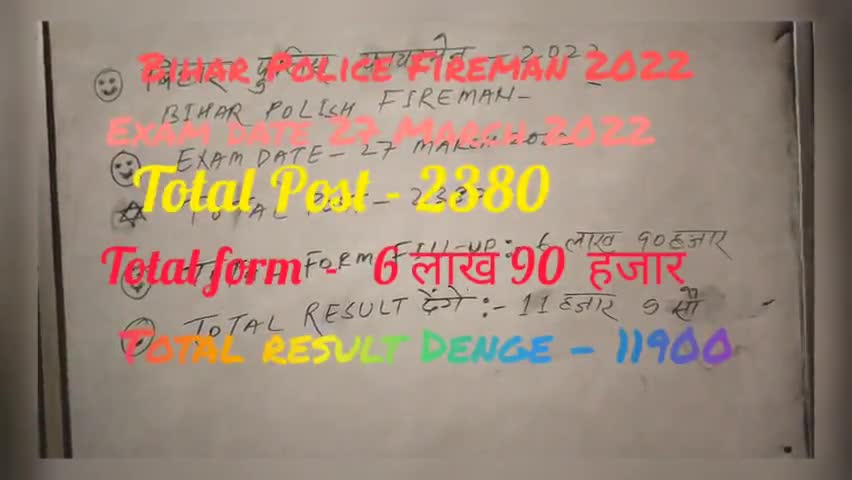 Bihar Police Fireman 2022
बिहार पुलिस - 2022
BIHAR POLISH FIREMAN -
Exam date 27 March 2022
EXAM DATE - 27 MARCH
Total Post - 2380
TOTAL POST - 2380
TOTAL FORM FILL-UP :- 6 लाख 90 हजार
Total form - 6 लाख 90 हजार
TOTAL RESULT देंगे :- 11 हजार 9 सौ -
Total result Denge - 11900